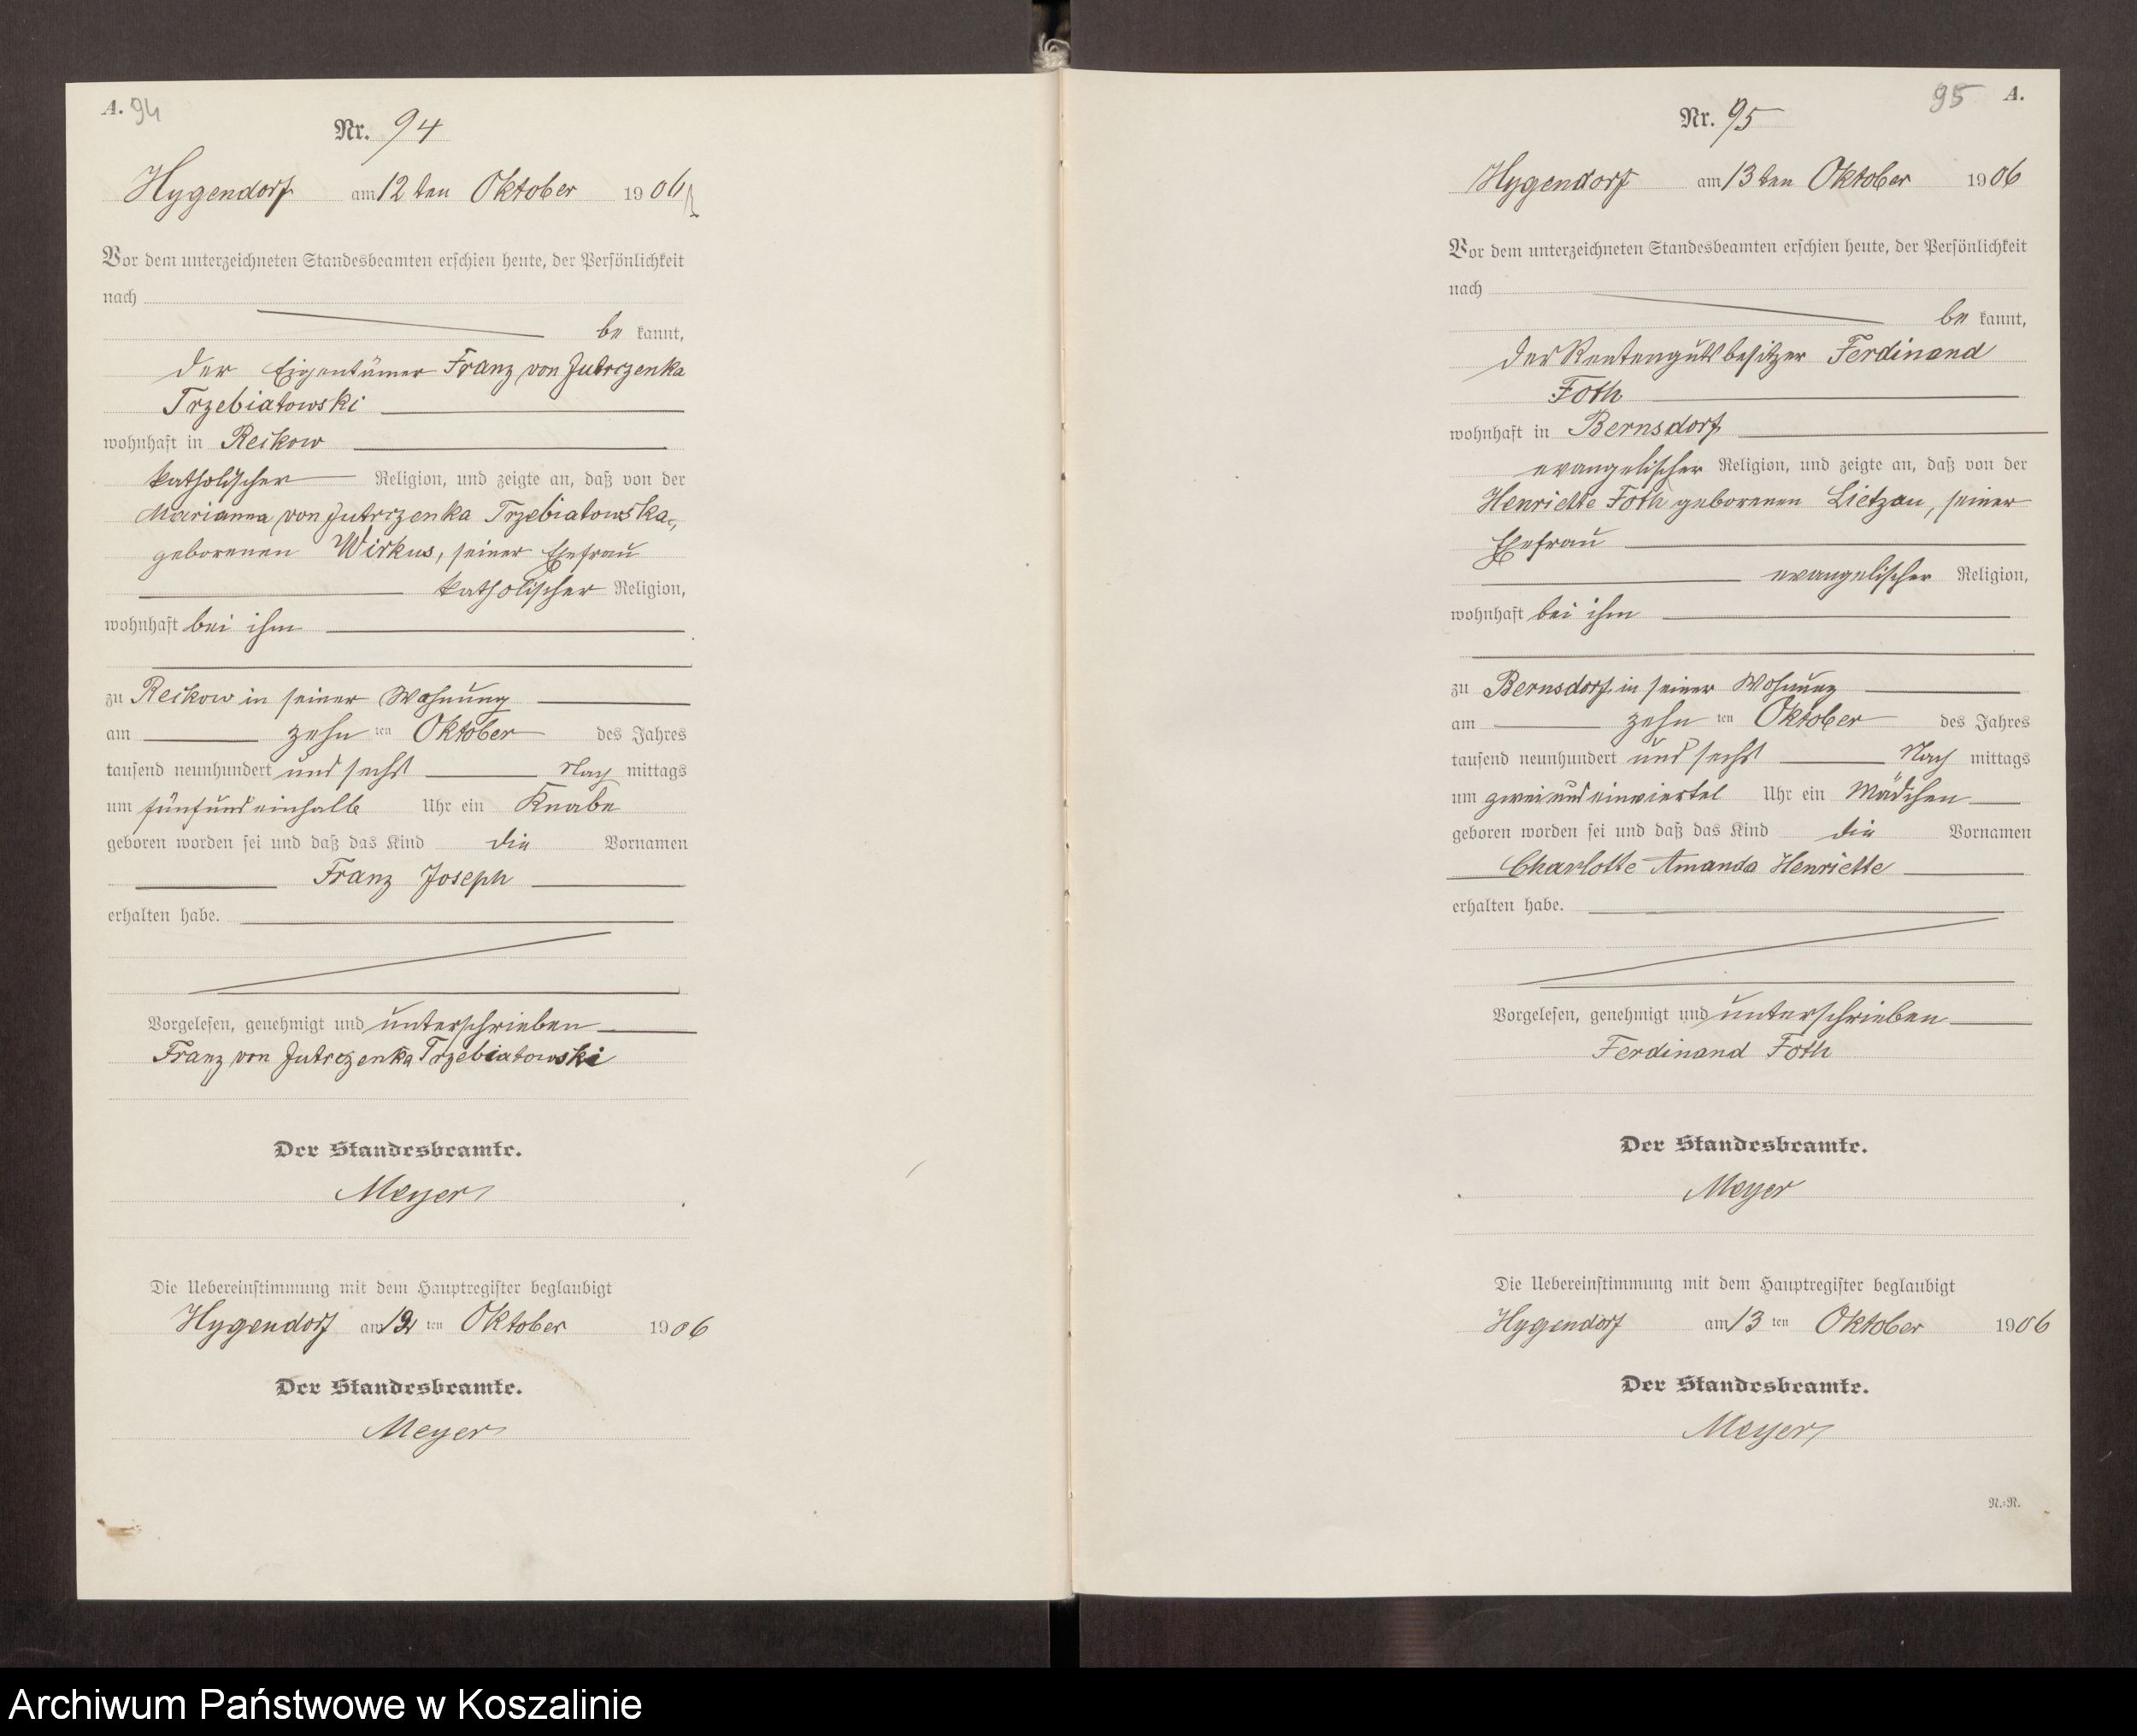 A. 94
Nr. 94
Hygendorf am 12 ten Oktober 1906
Vor dem unterzeichneten Standesbeamten erschien heute, der Persönlichkeit
nach
be kannt,
der Eigentümer Franz von Jutrczenka
Trzebiatowski
wohnhaft in Reckow
katholischer Religion, und zeigte an, daß von der
Marianna von Jutrczenka Trzebiatowska,
geborenen Wirkus, seiner Ehefrau
katholischer Religion,
wohnhaft bei ihm
zu Reckow in seiner Wohnung
am zehn ten Oktober des Jahres
tausend neunhundert und sechs Nach mittags
um fünfundeinhalb Uhr ein Knabe
geboren worden sei und daß das Kind die Vornamen
Franz Joseph
erhalten habe.
Vorgelesen, genehmigt und unterschrieben
Franz von Jutrczenka Trzebiatowski
Der Standesbeamte.
Meyer
Die Uebereinstimmung mit dem Hauptregister beglaubigt
Hygendorf am 12 ten Oktober 1906
Der Standesbeamte.
Meyer
95 A.
Nr. 95
Hygendorf am 13 ten Oktober 1906
Vor dem unterzeichneten Standesbeamten erschien heute, der Persönlichkeit
nach
be kannt,
der Rentengutsbesitzer Ferdinand
Foth
wohnhaft in Bernsdorf
evangelischer Religion, und zeigte an, daß von der
Henriette Foth geborenen Lietzau, seiner
Ehefrau
evangelischer Religion,
wohnhaft bei ihm
zu Bernsdorf in seiner Wohnung
am zehn ten Oktober des Jahres
tausend neunhundert und sechs Nach mittags
um zwei und einviertel Uhr ein Mädchen
geboren worden sei und daß das Kind die Vornamen
Charlotte Amanda Henriette
erhalten habe.
Vorgelesen, genehmigt und unterschrieben
Ferdinand Foth
Der Standesbeamte.
Meyer
Die Uebereinstimmung mit dem Hauptregister beglaubigt
Hygendorf am 13 ten Oktober 1906
Der Standesbeamte.
Meyer
N.=R.
Archiwum Państwowe w Koszalinie